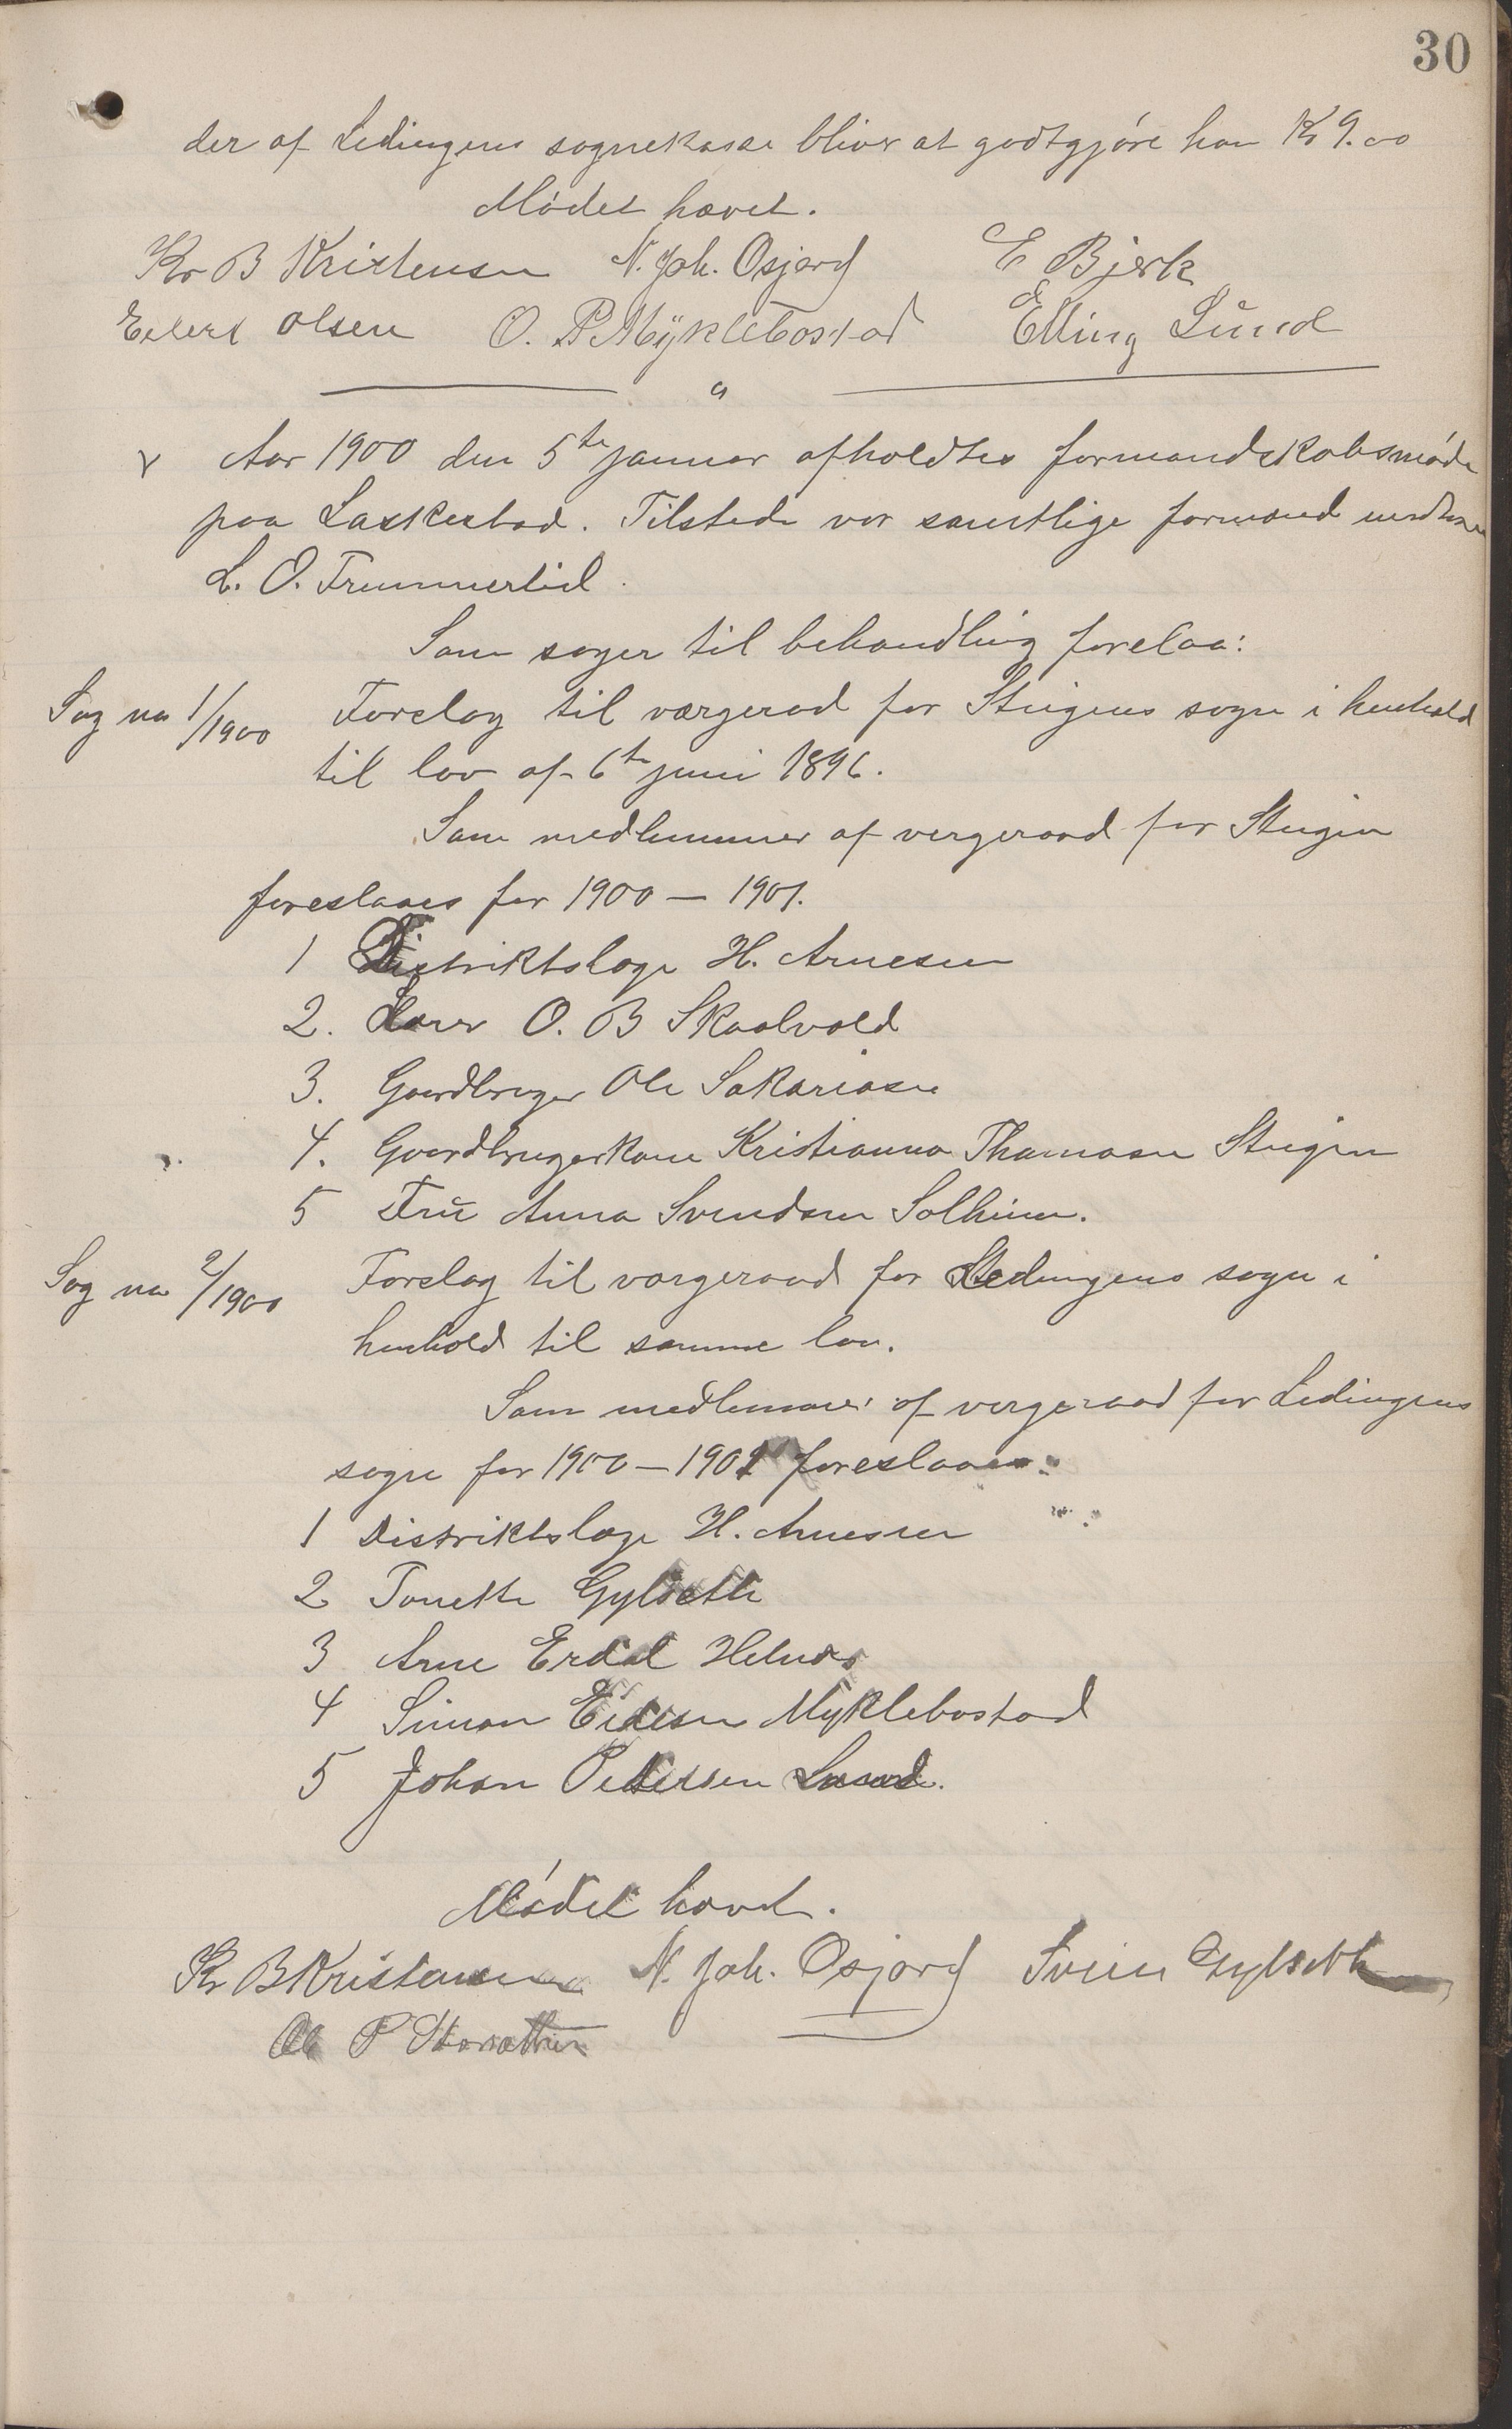 30
der af Ledingens sognekasse bliver at godtgjøre ham Kr 9.00
Mødet hævet.
Kr B Kristensen N. Joh. Osjord E Bjerk
Eilert Olsen O. P Myklebostad Elling Lund
"
Aar 1900 den 5te januar afholdtes formandskabsmøde
paa Laskestad. Tilstede var samtlige formænd undtagen
L. O. Trummerlid.
Som sager til behandling forelaa:
Sag no 1/1900 Forslag til værgeraad for Steigens sogn i henhold
til lov af 6te juni 1896.
Som medlemmer af vergeraad for Steigen
foreslaaes for 1900 — 1901.
1 Distriktslæge H. Arnesen
2. Lærer O. B Skaalvold
3. Gaardbruger Ole Sakariasen
4. Gaardbrugerkone Kristianna Thomasen Steigen
5 Fru Anna Svendsen Solheim.
Sag no 2/1900 Forslag til værgeraad for Ledingens sogn i
henhold til samme lov.
Som medlemmer af vergeraad for Ledingens
sogn for 1900 — 1901 foreslaaes:
1 Distriktslæge H. Arnesen
2 Tonette Gylseth
3 Arne Erdal Helnes
4 Simon Eidesen Myklebostad
5 Johan Pedersen Lund.
Mødet hævet.
Kr B Kristensen N. Joh. Osjord Svein Gylseth
Ole P